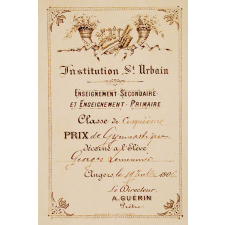 Institution St. Urbain
ENSEIGNEMENT SECONDAIRE
ET ENSEIGNEMENT PRIMAIRE
Classe de Cinquième
PRIX de Gymnastique
décerné à l'Élève
Georges
Angers, le
Le Directeur
A. GUÉRIN
Prêtre